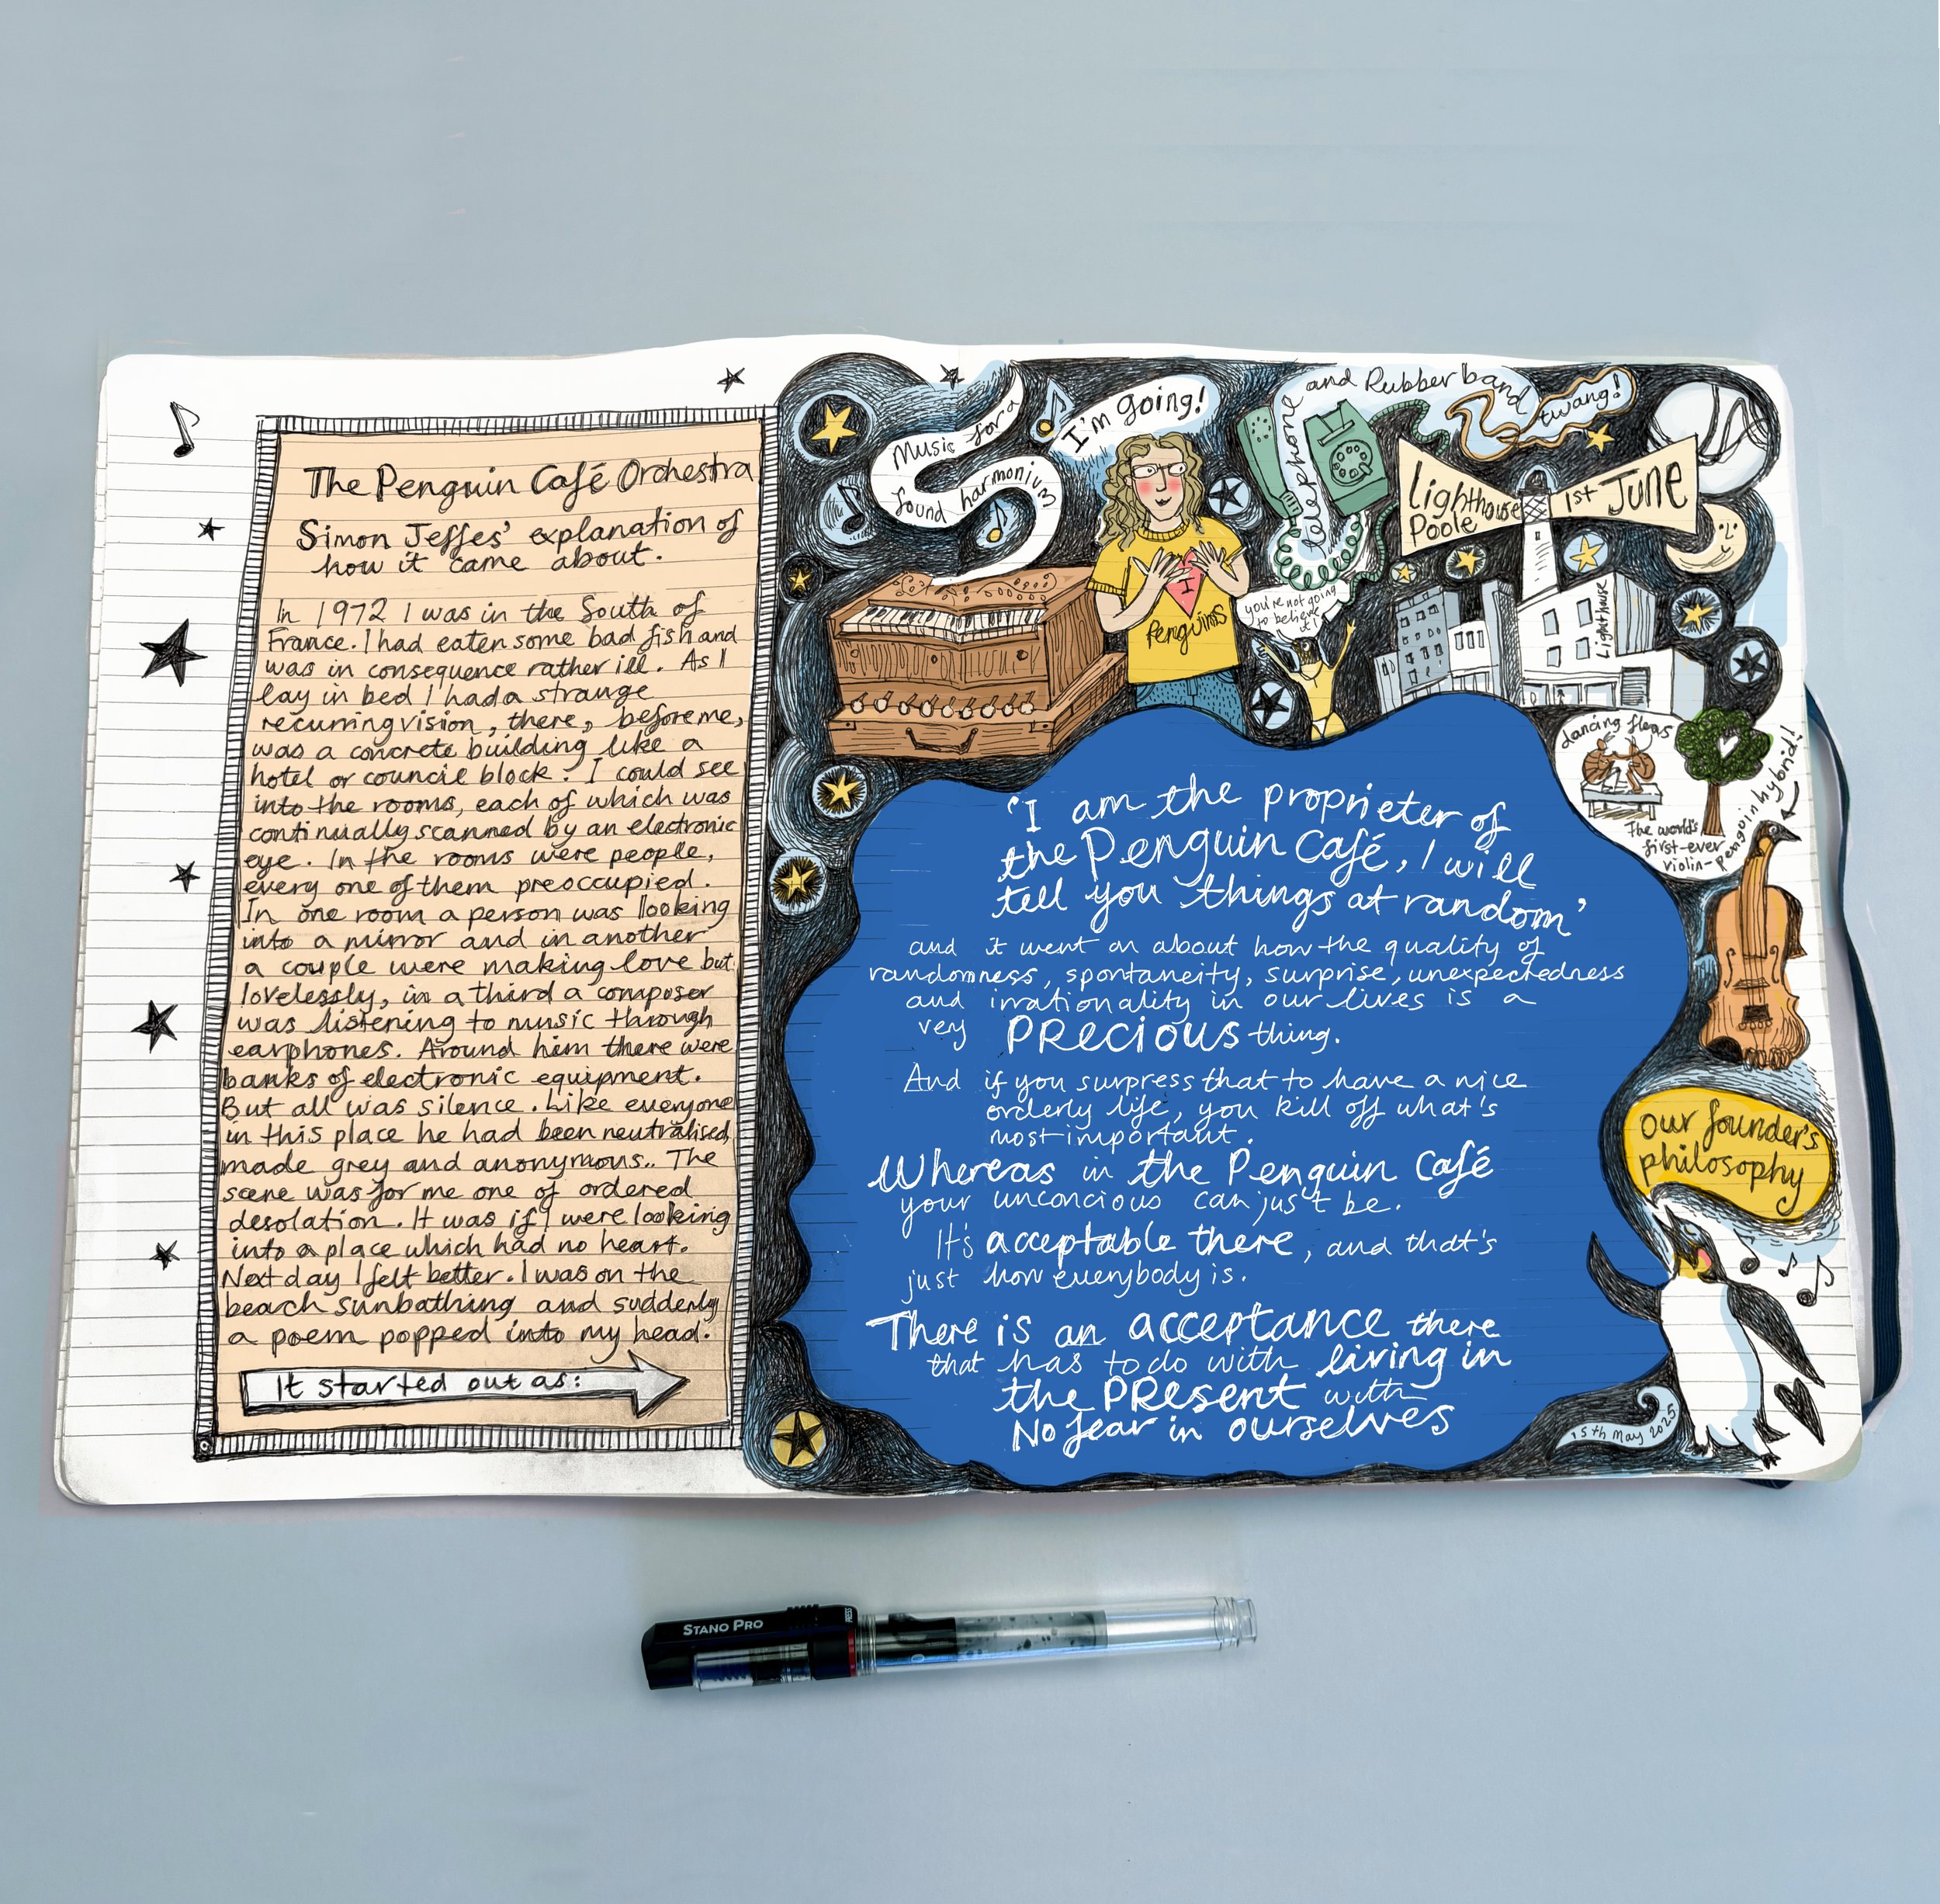 The Penguin Café Orchestra
Simon Jeffes' explanation of
how it came about.
In 1972 I was in the South of
France. I had eaten some bad fish and
was in consequence rather ill. As I
lay in bed I had a strange
recurring vision, there, before me,
was a concrete building like a
hotel or council block. I could see
into the rooms, each of which was
continually scanned by an electronic
eye. In the rooms were people,
every one of them preoccupied.
In one room a person was looking
into a mirror and in another
a couple were making love but
lovelessly, in a third a composer
was listening to music through
earphones. Around him there were
banks of electronic equipment.
But all was silence. Like everyone
in this place he had been neutralised,
made grey and anonymous.. The
scene was for me one of ordered
desolation. It was if I were looking
into a place which had no heart.
Next day I felt better. I was on the
beach sunbathing and suddenly
a poem popped into my head.
It started out as:
Music for a
found harmonium
I'm going!
I
Penguins
telephone
and Rubber band
twang!
you're not going
to believe
it!
Lighthouse
Poole
1st June
Lighthouse
dancing fleas
The world's
first-ever
violin-penguin hybrid!
'I am the proprieter of
the Penguin Café, I will
tell you things at random'
and it went on about how the quality of
randomness, spontaneity, surprise, unexpectedness
and irrationality in our lives is a
very PRECIOUS thing.
And if you surpress that to have a nice
orderly life, you kill off what's
most important.
Whereas in the Penguin Café
your unconcious can just be.
It's acceptable there, and that's
just how everybody is.
There is an acceptance there
that has to do with living in
the PRESENT with
No fear in ourselves
our founder's
philosophy
15th May 2025
STANO PRO
PRESS